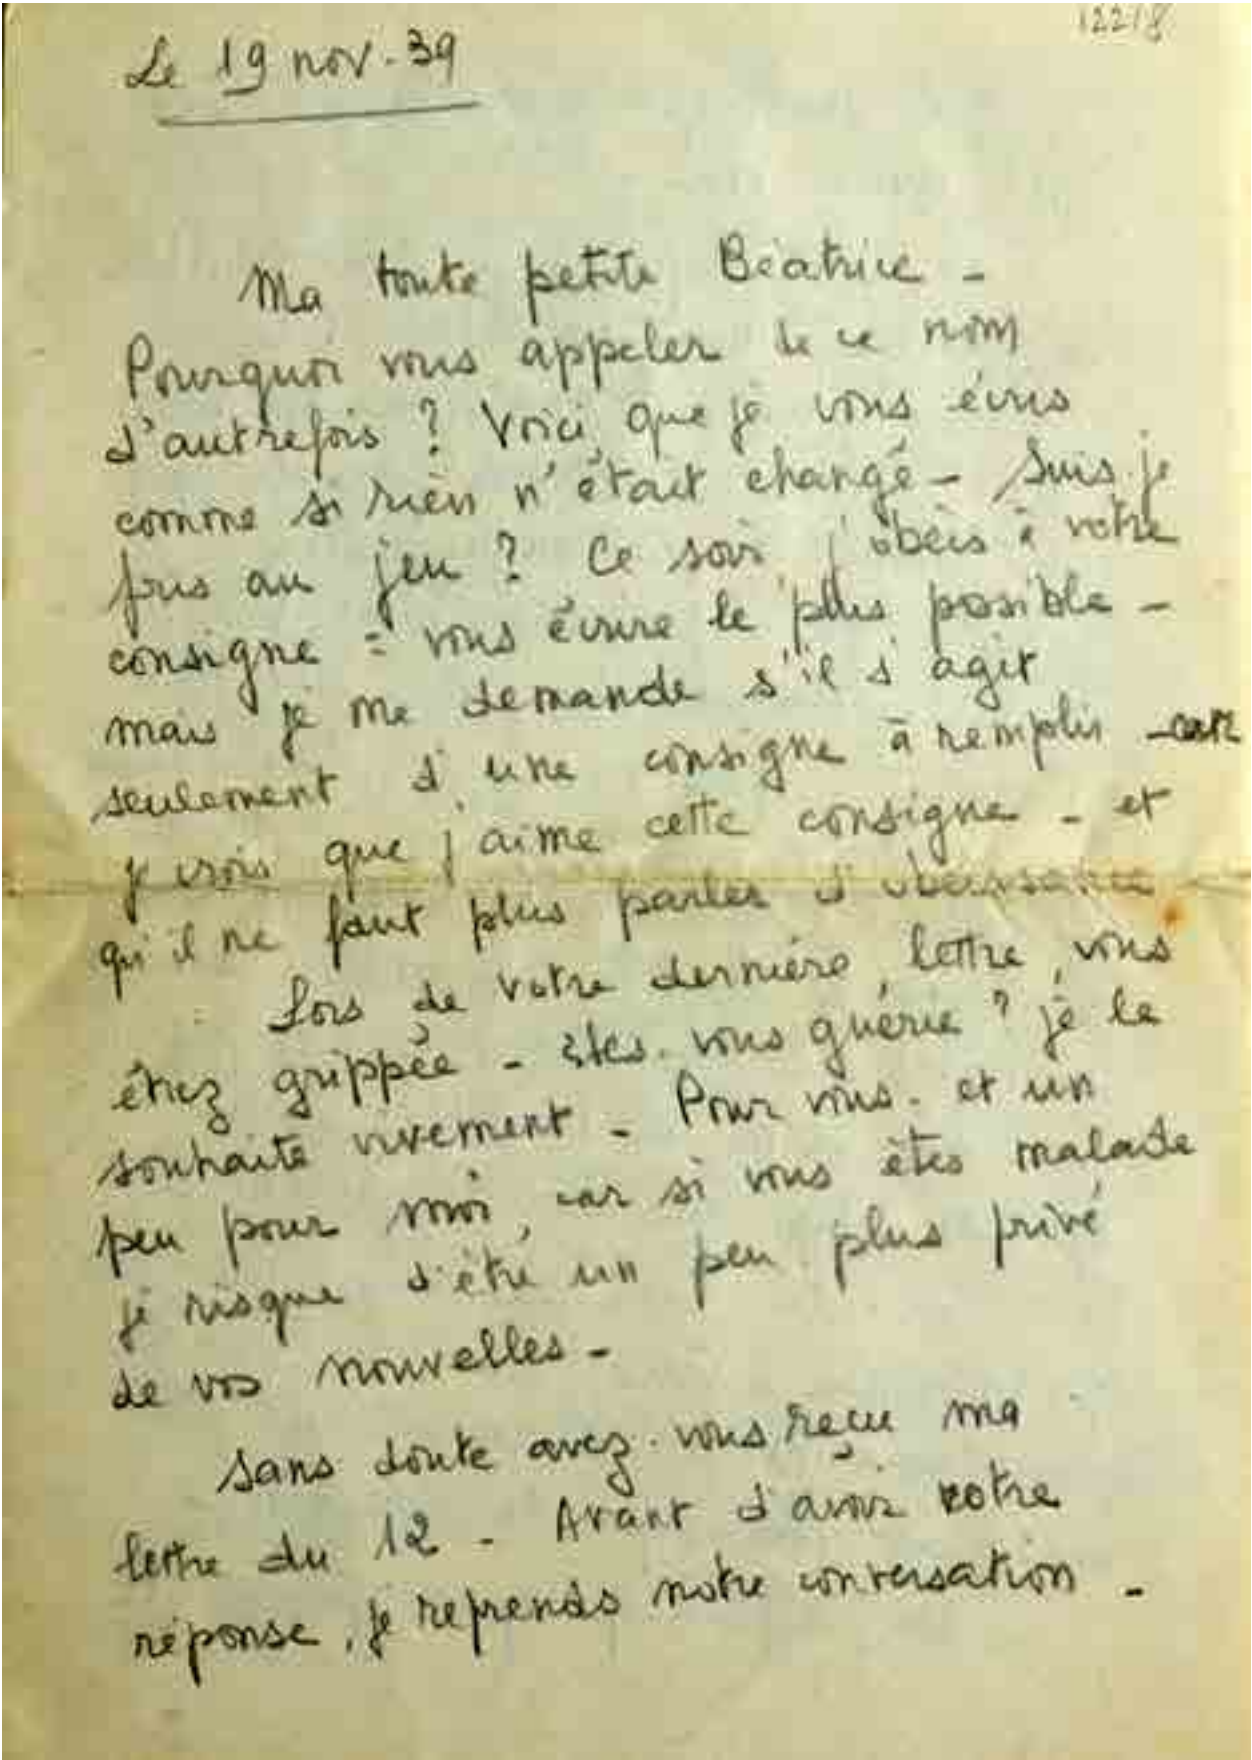 12218
Le 19 nov. 39
Ma toute petite Béatrice -
Pourquoi vous appeler de ce nom
d'autrefois ? Voici que je vous écris
comme si rien n'était changé - Suis-je
pris au jeu ? Ce soir j'obéis à votre
consigne : vous écrire le plus possible -
mais je me demande s'il s'agit
seulement d'une consigne à remplir - car
je crois que j'aime cette consigne - et
qu'il ne faut plus parler d'obéissance -
Lors de votre dernière lettre, vous
étiez grippée - êtes-vous guérie ? je le
souhaite vivement - Pour vous - et un
peu pour moi, car si vous êtes malade
je risque d'être un peu plus privé
de vos nouvelles -
Sans doute avez-vous reçu ma
lettre du 12 - Avant d'avoir votre
réponse, je reprends notre conversation -